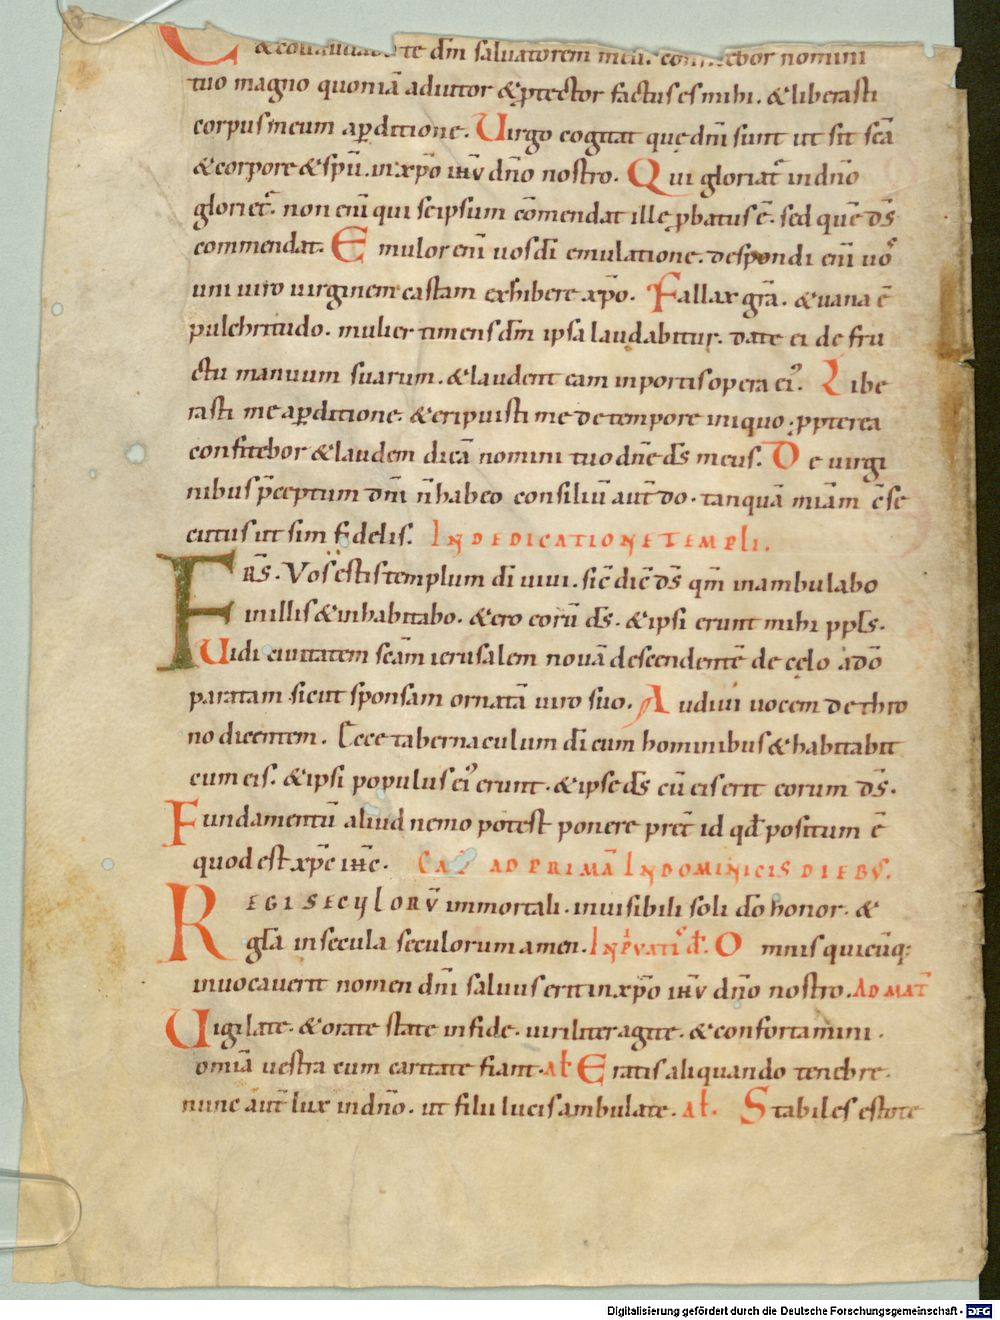 C & collaudabo te dm̄ saluatorem meū. confitebor nomini
tuo magno quoniā adiutor & ꝓtector factus es mihi. & liberasti
corpus meum a ꝑditione. Uirgo cogitat que dn̄i sunt ut sit scā
& corpore & spū. in xp̄o ihū dn̄o nostro. Qui gloriat̄ in dn̄o
gloriet̄. non eni᷑ qui seipsum cōmendat ille ꝓbatus ē. sed quē ds̄
commendat. Emulor eni᷑ uos dī emulatione. despondi eni᷑ uos
uni uiro uirginem castam exhibere xp̄o. Fallax grā. & uana ē
pulchritudo. mulier timens dm̄ ipsa laudabitur. date ei de fru
ctu manuum suarum. & laudent eam in portis opera ei᾽. Libe
rasti me a ꝑditione. & eripuisti me de tempore iniquo. ꝓpterea
confitebor & laudem dicā nomini tuo dn̄e ds̄ meus. De uirgi
nibus p̄ceptum dn̄i n̄ habeo consiliū aut̄ do. tanquā miām cōse
cutus ut sim fidelis. IN DEDICATIONE TEMPLI.
FRS̄. Vos estis templum dī uiui. sic̄ dic̄ ds̄ qm̄ inambulabo
in illis & inhabitabo. & ero eorū ds̄. & ipsi erunt mihi ppl̄s.
Uidi ciuitatem scām ierusalem nouā descendentē de cęlo a dō
paratam sicut sponsam ornatā uiro suo. Audiui uocem de thro
no dicentem. Ecce tabernaculum dī cum hominibus & habitabit
cum eis. & ipsi populus ei᾽ erunt. & ipse ds̄ cū eis erit eorum ds̄.
Fundamentū aliud nemo potest ponere pret̄ id qd̄ positum ē
quod est xp̄c ihc̄. CAP AD PRIMĀ IN DOMINICIS DIEBVS.
REGI SECULORV̄ immortali. inuisibili soli dō honor. &
glā in secula seculorum amen. IN PVATI᾽ D̄. Omnis quicūq;
inuocauerit nomen dn̄i saluus erit in xp̄o ihū dn̄o nostro. AD MAT̄
Uigilate. & orate state in fide. uiriliter agite. & confortamini.
omīa uestra cum caritate fiant. aƚ Eratis aliquando tenebre.
nunc aut̄ lux in dn̄o. ut filii lucis ambulate. aƚ. Stabiles estote
Digitalisierung gefördert durch die Deutsche Forschungsgemeinschaft - DFG